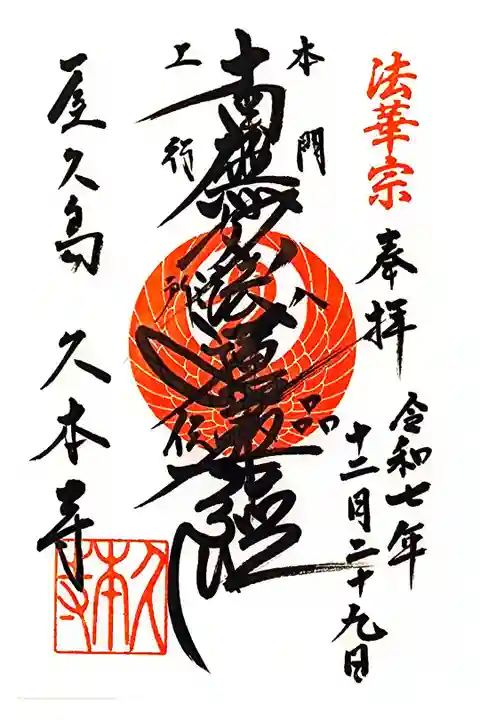 法華宗
奉拝
令和七年
十二月二十九日
本門八品
南無妙法蓮華経
上行所伝
屋久島 久本寺
久本寺